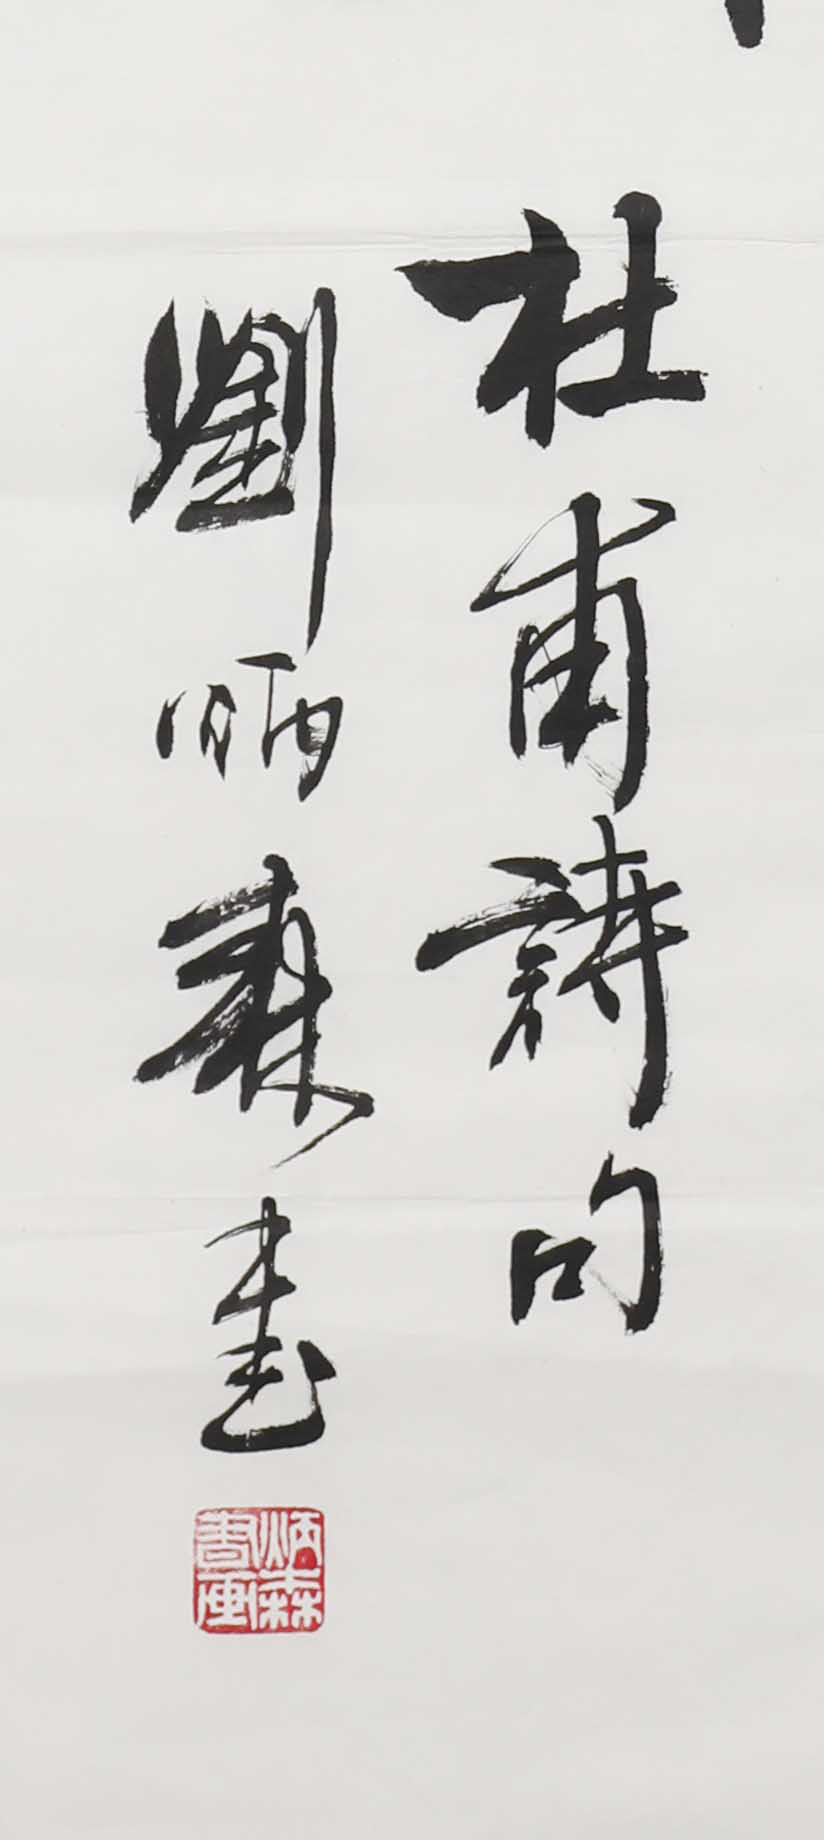 杜甫詩句
劉炳森書
炳森
書画